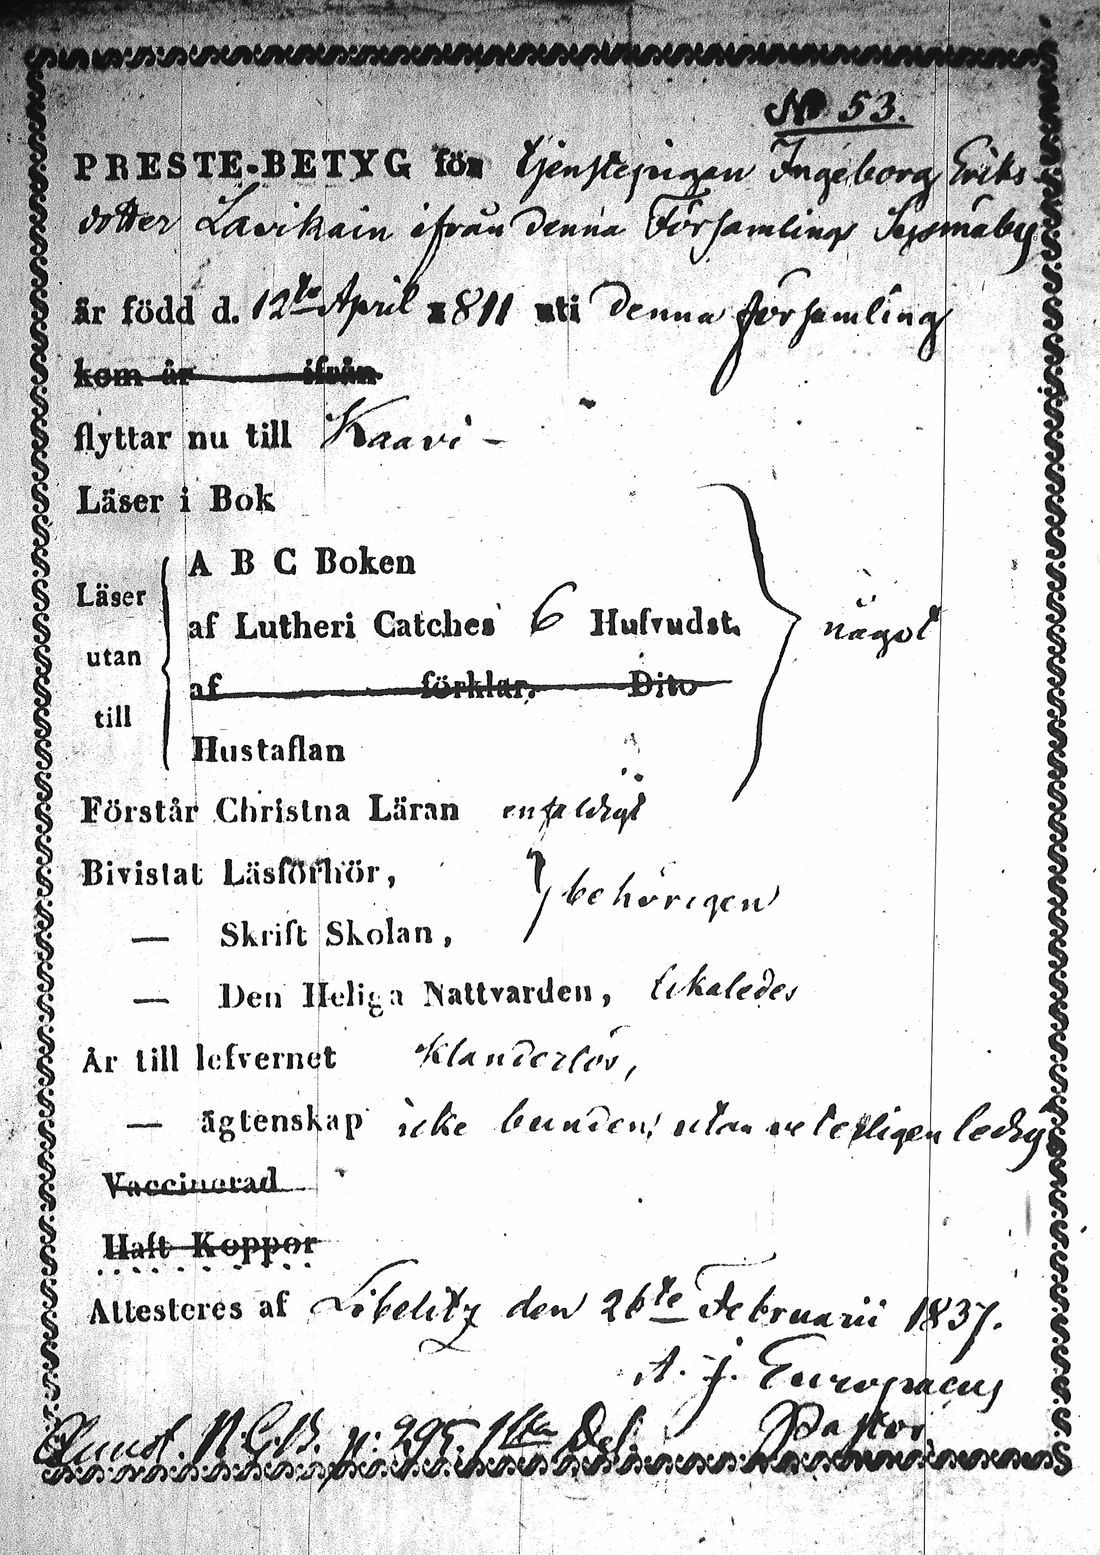 No 53.
PRESTE-BETYG för tjenstepigan Ingeborg Eriks-
dotter Lavikain ifrån denna Församlings Sysmäby
är född d. 12te April 1811 uti denna församling
kom år ifrån
flyttar nu till Kaavi -
Läser i Bok
A B C Boken
Läser
af Lutheri Catches 6 Hufvudst. något
utan
af förklar. Dito
till
Hustaflan
Förstår Christna Läran enfaldigt
Bivistat Läsförhör,
behörigen
— Skrift Skolan,
— Den Heliga Nattvarden, likaledes
Är till lefvernet klanderlös,
— ägtenskap icke bunden, utan veterligen ledig
Vaccinerad
Haft Koppor
Attesteres af Libelitz den 26te Februarii 1837.
A. J. Europaeus
Pastor.
N.C.B. p: 295. 1sta Del.